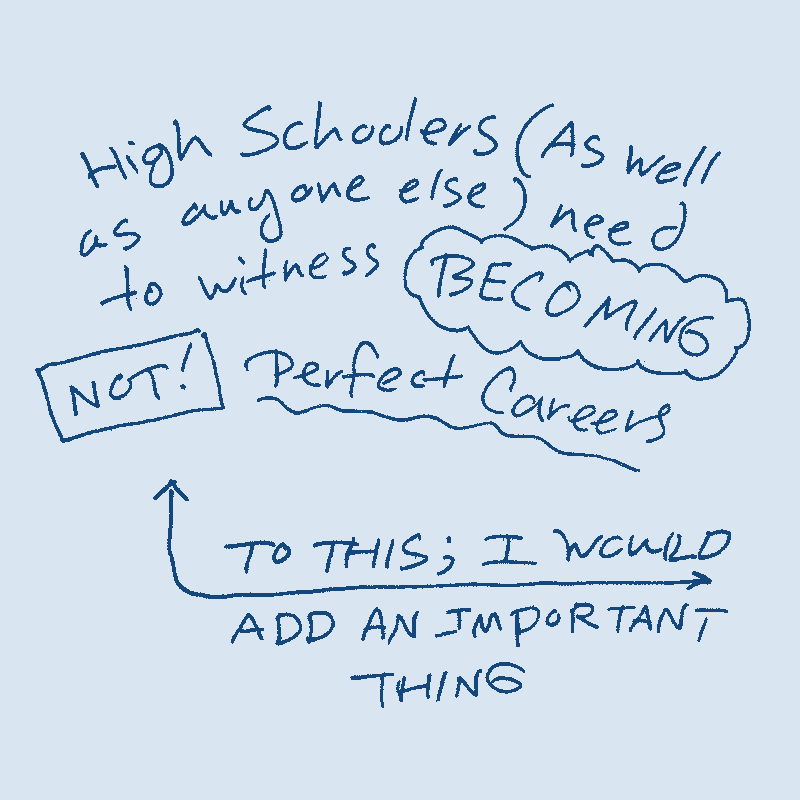 High Schoolers (As well
as anyone else) need
to witness BECOMING
NOT! Perfect Careers
TO THIS; I WOULD
ADD AN IMPORTANT
THING